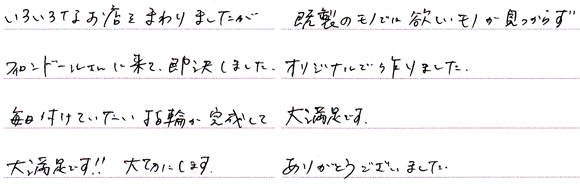 いろいろなお店をまわりましたが　既製のモノでは欲しいモノが見つからず
フィロンドールさんに来て、即決しました。オリジナルで作りました。
毎日付けていたい指輪が完成して　大満足です。
大満足です!!　大切にします。　ありがとうございました。